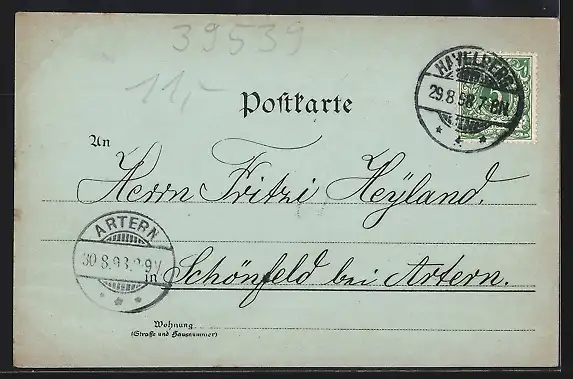 39539
11,-
HAVELBERG
29.8.98.7-8N
5
Postkarte
An
Herrn Fritzi Heyland.
ARTERN
30.8.98.8-9V
in Schönfeld bei Artern.
Wohnung
(Straße und Hausnummer)